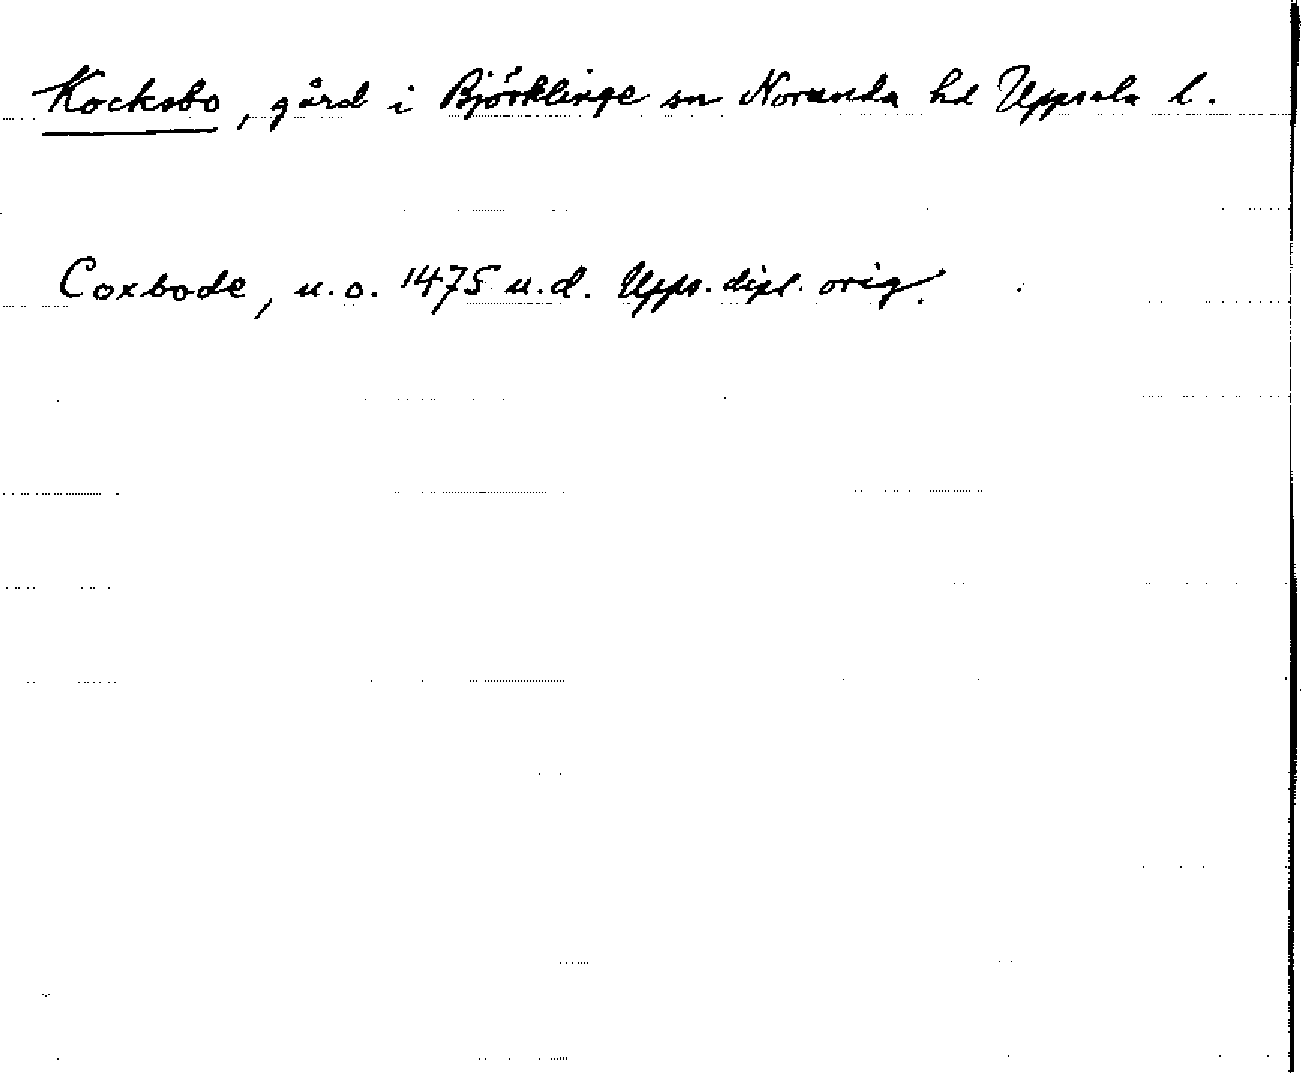 Kocksbo, gård i Björklinge sn Norunda hd Uppsala l.
Coxbode, u.o. 1475 u.d. Upps. dipl. orig.